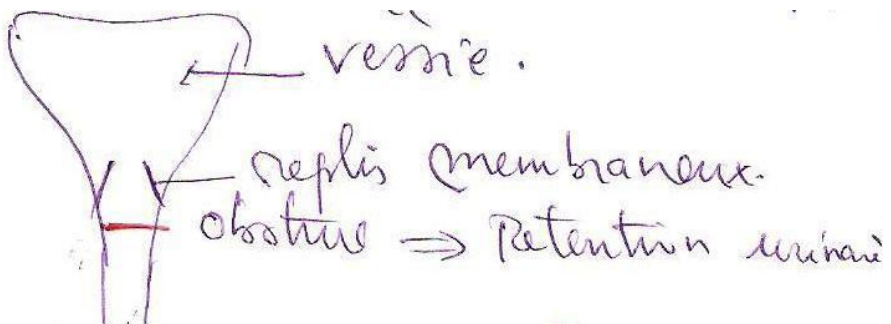 vessie.
replis membraneux.
obstrue ⇒ Retention urinaire